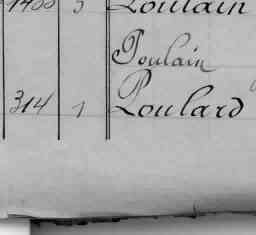 1435 3 Poulain
Poulain
314 1 Poulard